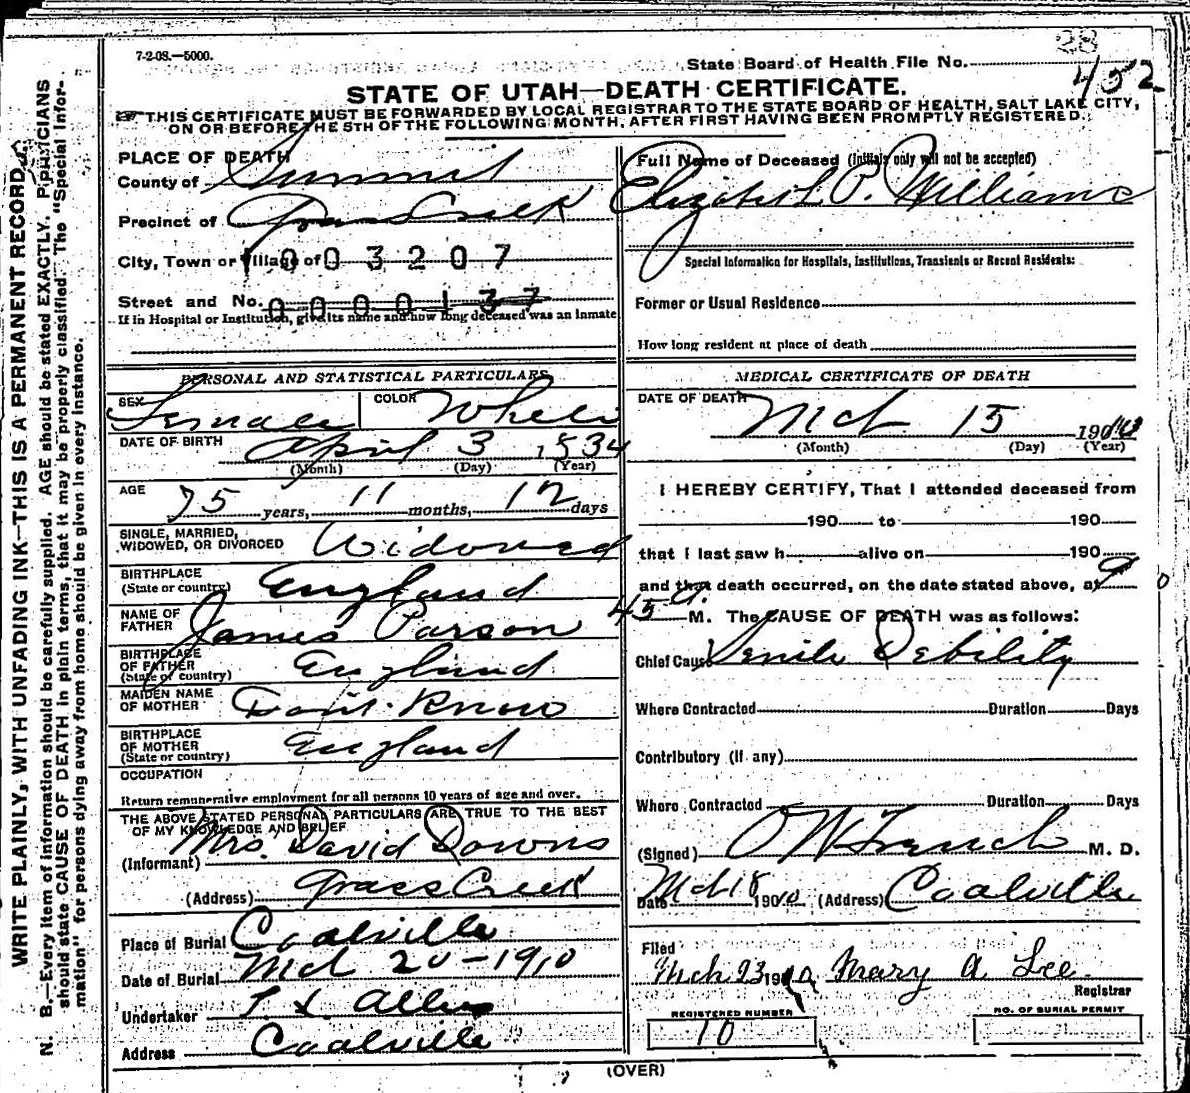 7-2-08.—5000.
28
State Board of Health File No. 452
STATE OF UTAH—DEATH CERTIFICATE.
THIS CERTIFICATE MUST BE FORWARDED BY LOCAL REGISTRAR TO THE STATE BOARD OF HEALTH, SALT LAKE CITY,
ON OR BEFORE THE 5TH OF THE FOLLOWING MONTH, AFTER FIRST HAVING BEEN PROMPTLY REGISTERED.
WRITE PLAINLY, WITH UNFADING INK—THIS IS A PERMANENT RECORD.
N. B.—Every item of information should be carefully supplied. AGE should be stated EXACTLY. PHYSICIANS
should state CAUSE OF DEATH in plain terms, that it may be properly classified. The "Special Infor-
mation" for persons dying away from home should be given in every instance.
PLACE OF DEATH
County of Summit
Precinct of Grass Creek
City, Town or Village of 003207
Street and No. 0000137
If in Hospital or Institution, give its name and how long deceased was an inmate
PERSONAL AND STATISTICAL PARTICULARS
SEX Female COLOR White
DATE OF BIRTH April 3 1834
(Month) (Day) (Year)
AGE 75 years, 11 months, 12 days
SINGLE, MARRIED,
WIDOWED, OR DIVORCED Widowed
BIRTHPLACE
(State or country) England
NAME OF
FATHER James Parson
BIRTHPLACE
OF FATHER
(State or country) England
MAIDEN NAME
OF MOTHER Dont Know
BIRTHPLACE
OF MOTHER
(State or country) England
OCCUPATION
Return remunerative employment for all persons 10 years of age and over.
THE ABOVE STATED PERSONAL PARTICULARS ARE TRUE TO THE BEST
OF MY KNOWLEDGE AND BELIEF
(Informant) Mrs. David Downs
(Address) Grass Creek
Place of Burial Coalville
Date of Burial Mch 20-1910
Undertaker T. L. Allen
Address Coalville
Full Name of Deceased (Initials only will not be accepted)
Elizabeth P. Williams
Special Information for Hospitals, Institutions, Transients or Recent Residents:
Former or Usual Residence
How long resident at place of death
MEDICAL CERTIFICATE OF DEATH
DATE OF DEATH
Mch 15 1910
(Month) (Day) (Year)
I HEREBY CERTIFY, That I attended deceased from
190 to 190
that I last saw h alive on 190
and that death occurred, on the date stated above, at 9
45 a. M. The CAUSE OF DEATH was as follows:
Chief Cause Senile Debility
Where Contracted Duration Days
Contributory (if any)
Where Contracted Duration Days
(Signed) O W French M. D.
Date Mch 18 1910 (Address) Coalville
Filed
Mch 23 1910 Mary A Lee
Registrar
REGISTERED NUMBER
10
NO. OF BURIAL PERMIT
(OVER)